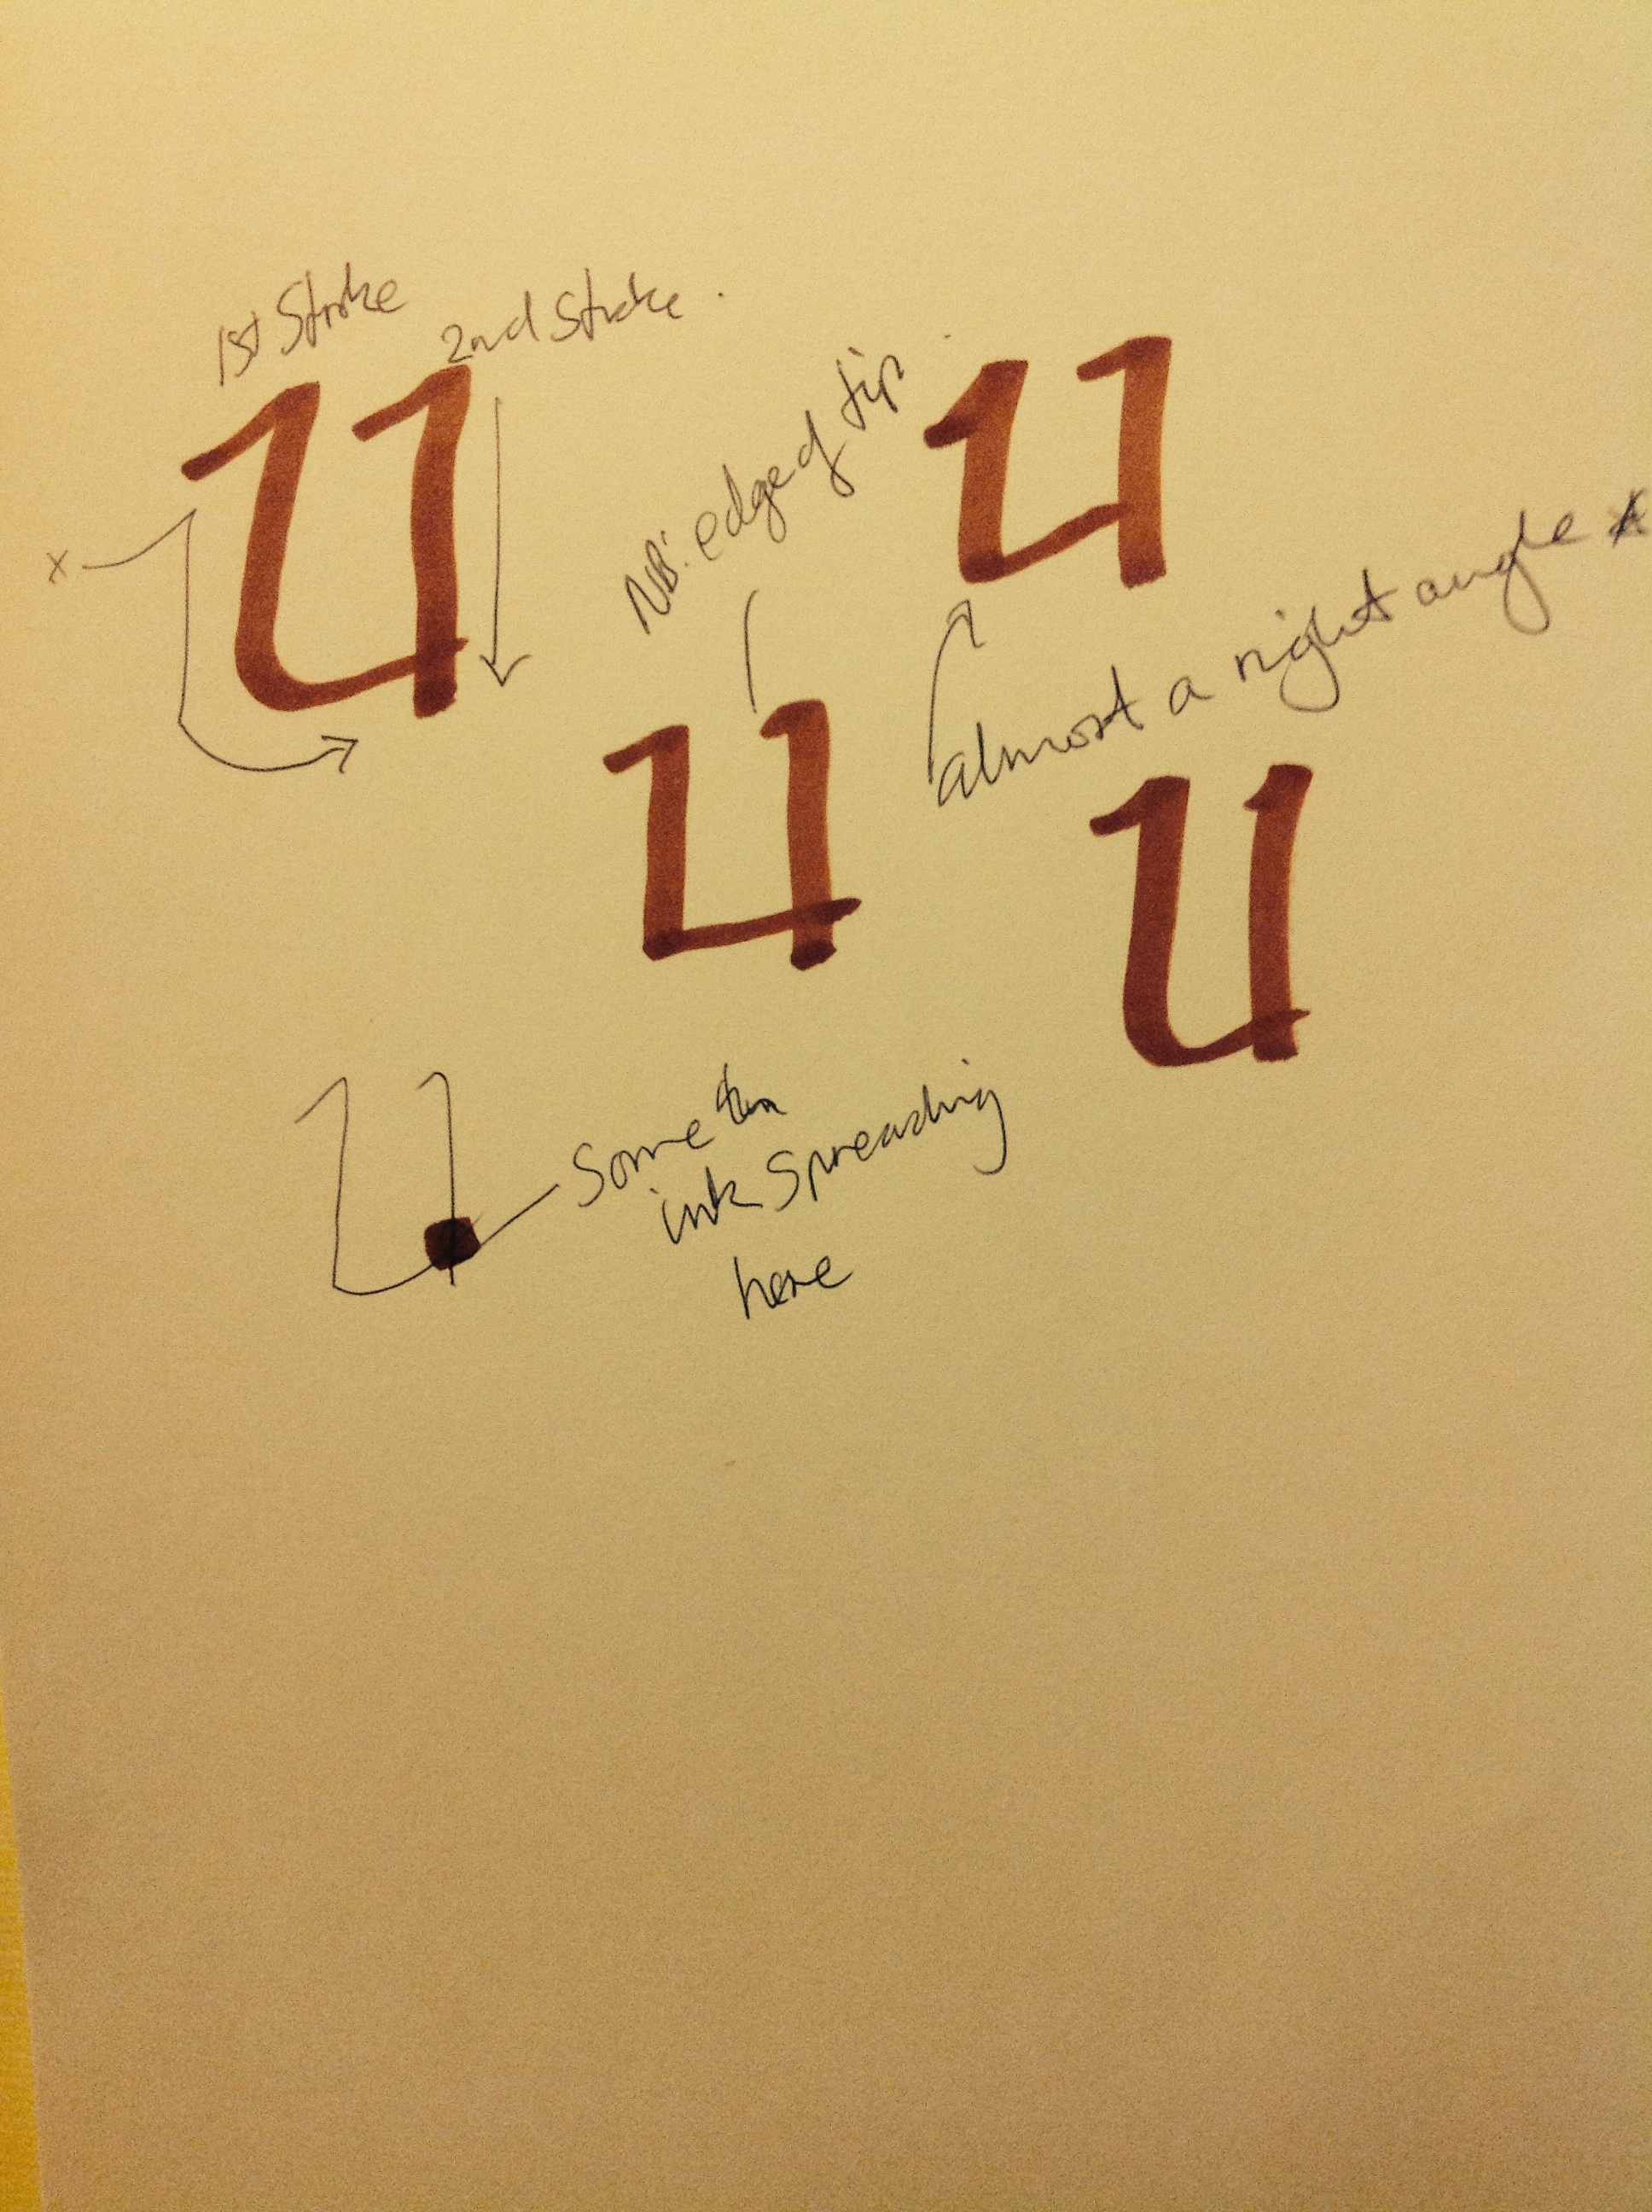 1st Stroke
2nd Stroke.
x
NB: edge of tip
u
u
almost a right angle x
u
u
u
Some
ink spreading
here